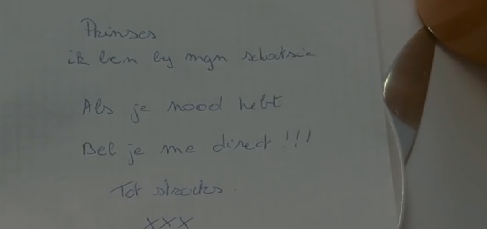 Prinses
ik ben by mijn schatsie
Als je nood hebt
Bel je me direct !!!
Tot straks.
xxx